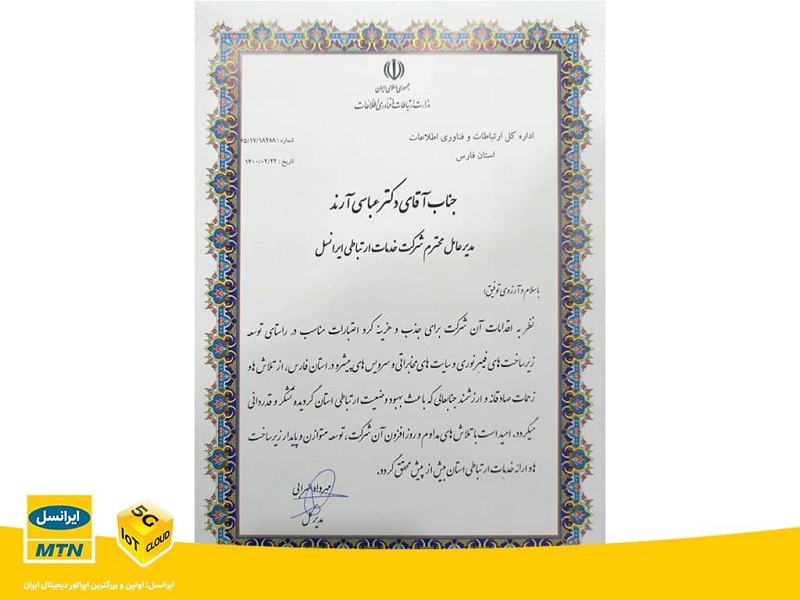 جمهوری اسلامی ایران
وزارت ارتباطات و فناوری اطلاعات
اداره کل ارتباطات و فناوری اطلاعات
استان فارس
شماره : ۶۵/۱۷/۱۸۲۸۸
تاریخ : ۱۴۰۰/۰۲/۲۲
جناب آقای دکتر عباسی آرند
مدیرعامل محترم شرکت خدمات ارتباطی ایرانسل
با سلام و آرزوی توفیق؛
نظر به اقدامات آن شرکت برای جذب و هزینه کرد اعتبارات مناسب در راستای توسعه
زیرساخت های فیبرنوری و سایت های مخابراتی و سرویس های پیشرو در استان فارس، از تلاش ها و
زحمات صادقانه و ارزشمند جنابعالی که باعث بهبود وضعیت ارتباطی استان گردیده تشکر و قدردانی
میگردد. امید است با تلاش های مداوم و روزافزون آن شرکت، توسعه متوازن و پایدار زیرساخت
ها و ارائه خدمات ارتباطی استان بیش از پیش محقق گردد.
مهرداد
مدیرکل
ایرانسل
MTN
5G
IoT
CLOUD
ایرانسل؛ اولین و بزرگترین اپراتور دیجیتال ایران